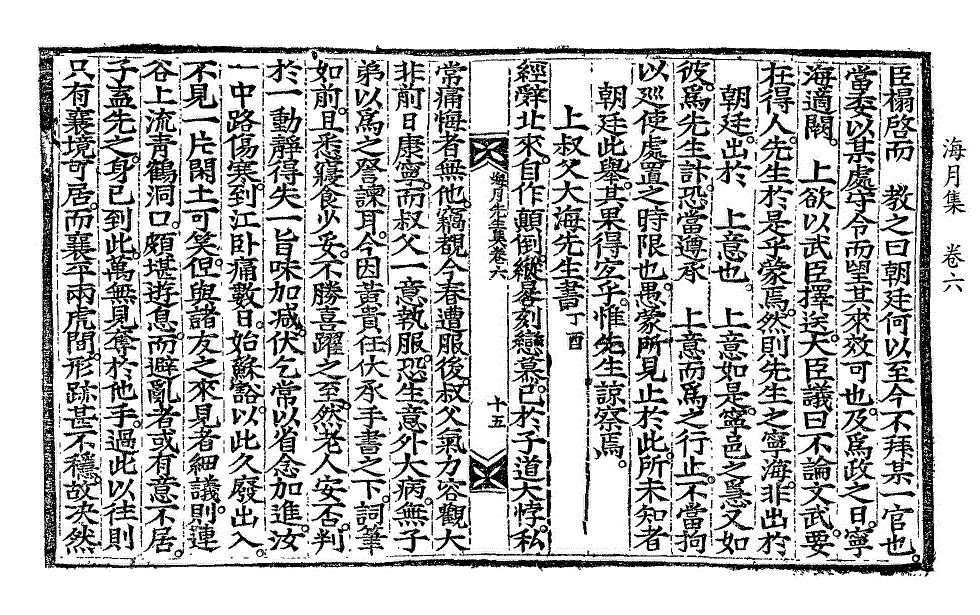 海月集 卷六
臣榻啓而 教之曰朝廷何以至今不拜某一官也。
當委以某處守令而望其來效可也。及爲政之日。寧
海適闕。 上欲以武臣擇送。大臣議曰不論文武。要
在得人。先生於是乎蒙焉。然則先生之寧海。非出於
朝廷。出於 上意也。 上意如是。寧邑之爲又如
彼。爲先生計。恐當遵承 上意而爲之行止。不當拘
以廵使處置之時限也。愚蒙所見止於此。所未知者
朝廷此舉。其果得宐乎。惟先生諒察焉。
上叔父大海先生書丁酉
經辭北來。自作顛倒。縱晷刻戀慕。已於子道大悖。私
海月先生文集卷六 十五
常痛悔者無他。竊覩今春遭服後。叔父氣力容觀大
非前日康寧。而叔父一意執服。恐生意外大病。無子
弟以爲之督諫耳。今因黃貴任伏承手書之下。詞筆
如前。且悉寢食少妥。不勝喜躍之至。然老人安否。判
於一動靜得失一旨味加减。伏乞常以省念加進。汝
一中路傷寒。到江卧痛數日。始蘇豁。以此久廢出入。
不見一片閑土可笑。但與諸友之來見者細議。則連
谷上流靑鶴洞口。頗堪遊息。而避亂者或有意不居。
子盍先之。身已到此。萬無見奪於他手。過此以往則
只有襄境可居。而襄平兩虎間。形跡甚不穩。故决然